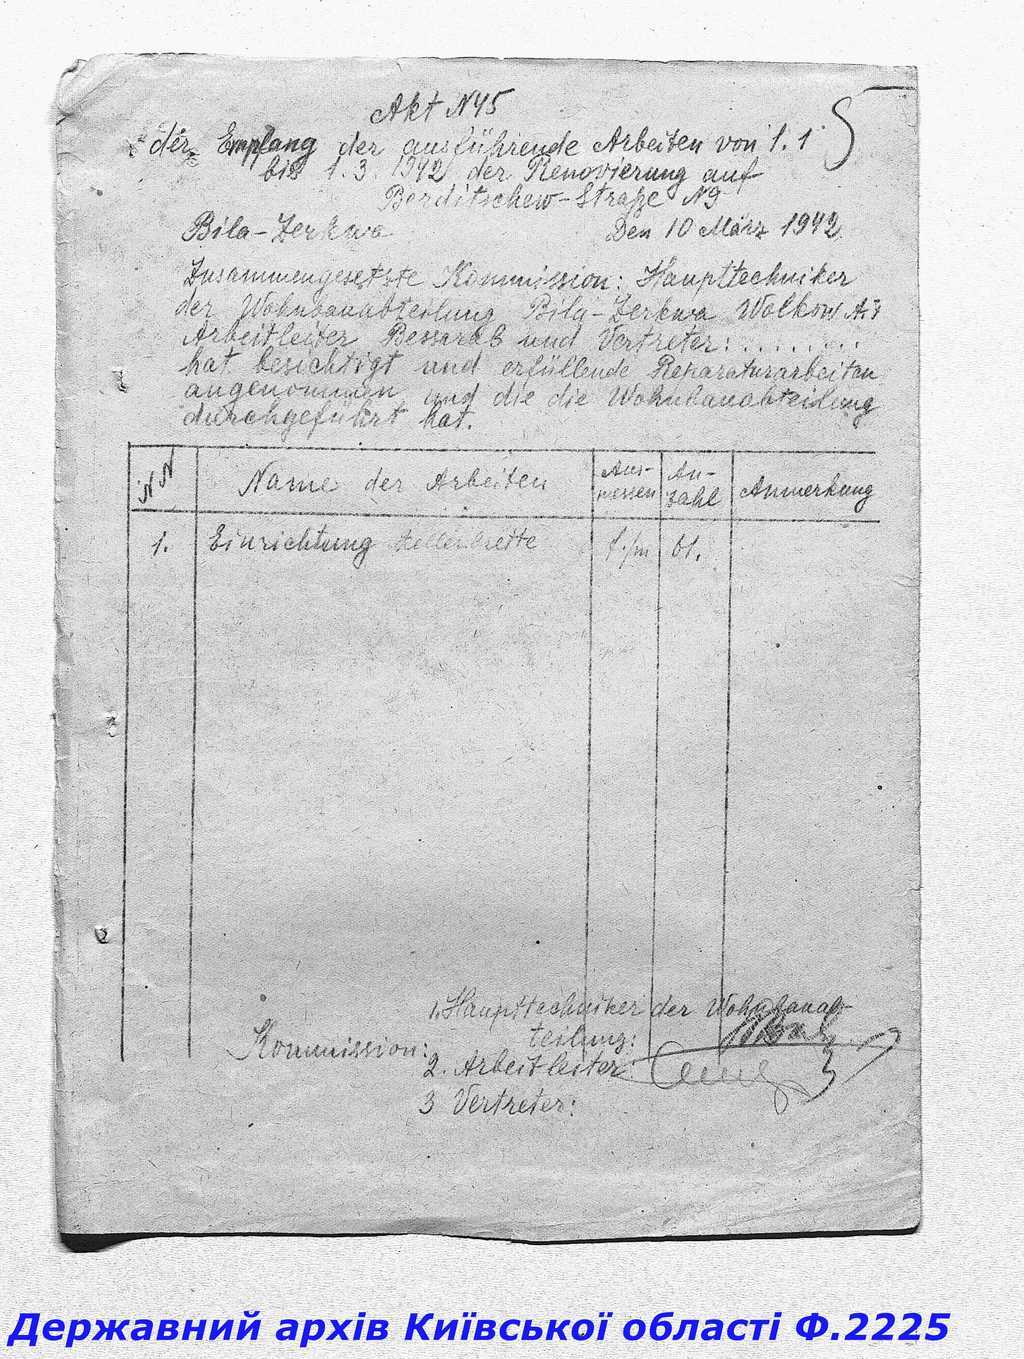 Akt N45
5
der Empfang der ausführende Arbeiten von 1.1
bis 1.3.1942 der Renovierung auf
Berditschew-Straße N9
Bila-Zerkwa Den 10 März 1942
Zusammengesetste Kommission: Haupttechniker
der Wohnbauabteilung Bila-Zerkwa Wolkow
Arbeitleiter Bessarab und Vertreter: . . . . . . .
hat besichtigt und erfüllende Reparaturarbeiten
angenommen und die die Wohnbauabteilung
durchgeführt hat.
NN Name der Arbeiten Aus-messen An-zahl Anmerkung
1. Einrichtung 61.
1. Haupttechniker der Wohnbauab-
teilung:
Kommission:
2. Arbeitleiter:
3 Vertreter:
Державний архів Київської області Ф.2225